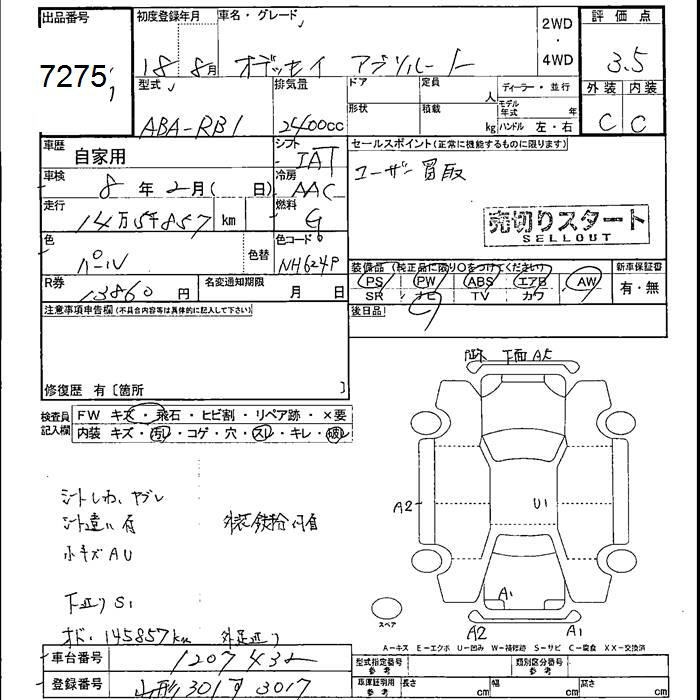 出品番号
7275
初度登録年月 車名・グレード
18 8月 オデッセイ アブソルート
2WD
・
4WD
評価点
3.5
外装 内装
C C
型式 排気量 ドア 定員 人 ディーラー・並行
ABA-RB1 2400cc
形状 積載 kg モデル年式 年
ハンドル 左・右
車歴 自家用
シフト IAT
車検 8年2月( 日)
冷房 AAC
走行 14万5千857 km
燃料 G
色 パール 色替
色コード NH624P
R券 13860円
名変通知期限 月 日
セールスポイント(正常に機能するものに限ります)
ユーザー買取
売切りスタート
SELLOUT
装備品 (純正品に限り○をつけてください) 新車保証書
PS PW ABS エアB AW 有・無
SR ナビ TV カワ
後日品
注意事項申告欄(不具合内容等は具体的に記入して下さい)
修復歴 有[箇所 ]
検査員記入欄
FW キズ・飛石・ヒビ割・リペア跡・×要
内装 キズ・汚れ・コゲ・穴・スレ・キレ・破れ
シートしわ、ヤブレ
シート違い有
小キズAU
外装鉄粉
下廻りS1
オド、145857km
下面
A2
U1
A1
A2 A1
スペア
A-キズ E-エクボ U-凹み W-補修跡 S-サビ C-腐食 XX-交換済
車台番号 1207432
登録番号 山形301す3017
型式指定番号 参考 類別区分番号 参考
車庫証明用 参考 長さ cm 幅 cm 高さ cm